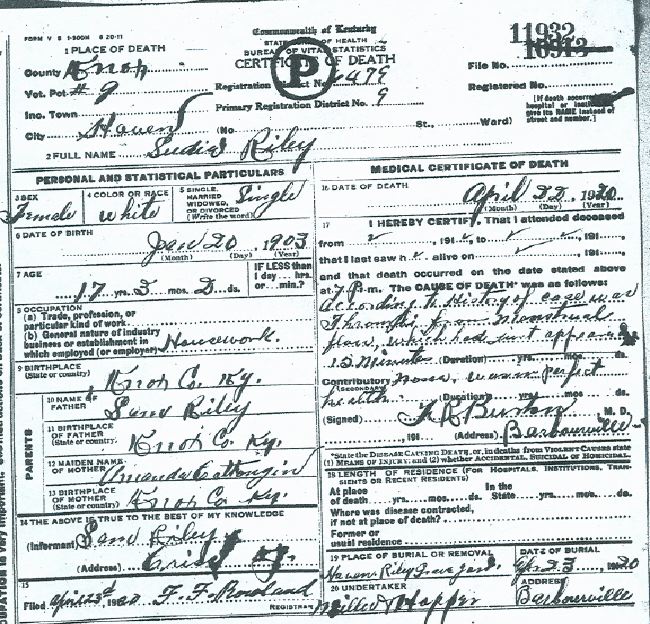 FORM V S 1-200M 8 20-11
Commonwealth of Kentucky
STATE BOARD OF HEALTH
BUREAU OF VITAL STATISTICS
CERTIFICATE OF DEATH
P
11932
File No.
1 PLACE OF DEATH
County Knox
Registration District No. 6479
Registered No.
Vot. Pct # 9
Primary Registration District No. 9
Inc. Town
[If death occurred in a hospital or institution, give its NAME instead of street and number.]
City Haven (No St., Ward)
2 FULL NAME Sudie Riley
PERSONAL AND STATISTICAL PARTICULARS
3 SEX Female
4 COLOR OR RACE white
5 SINGLE, MARRIED WIDOWED, OR DIVORCED (Write the word) Single
6 DATE OF BIRTH Jan 20, 1903
(Month) (Day) (Year)
7 AGE 17 yrs. 3 mos. 2 ds.
IF LESS than 1 day... hrs. or... min.?
8 OCCUPATION
(a) Trade, profession, or particular kind of work
(b) General nature of industry business or establishment in which employed (or employer) Housework.
9 BIRTHPLACE
(State or country) Knox Co. Ky.
PARENTS
10 NAME OF FATHER Sam Riley
11 BIRTHPLACE OF FATHER
(State or country) Knox Co Ky.
12 MAIDEN NAME OF MOTHER Amanda
13 BIRTHPLACE OF MOTHER
(State or country) Knox Co Ky.
14 THE ABOVE IS TRUE TO THE BEST OF MY KNOWLEDGE
(Informant) Sam Riley
(Address) Ky.
15
Filed April 23d, 1920 F. F. Rowland
REGISTRAR
MEDICAL CERTIFICATE OF DEATH
16 DATE OF DEATH April 22, 1920
(Month) (Day) (Year)
17 I HEREBY CERTIFY, That I attended deceased
from , 191 , to , 191 ,
that I last saw h alive on , 191 ,
and that death occurred on the date stated above
at 7 P. m. The CAUSE OF DEATH* was as follows:
According to History of case was
thrombi from menstrual
flow, which had just appeared
15 Minutes (Duration) yrs. mos. ds.
Contributory none, was in perfect
(SECONDARY)
health (Duration) yrs. mos. ds.
(Signed) Burton M. D.
, 191 (Address) Barbourville
*State the DISEASE CAUSING DEATH, or, in deaths from VIOLENT CAUSES state (1) MEANS OF INJURY; and (2) whether ACCIDENTAL, SUICIDAL or HOMICIDAL.
18 LENGTH OF RESIDENCE (FOR HOSPITALS, INSTITUTIONS, TRANSIENTS OR RECENT RESIDENTS)
At place of death yrs. mos. ds. In the State yrs. mos. ds.
Where was disease contracted, if not at place of death?
Former or usual residence
19 PLACE OF BURIAL OR REMOVAL
Haven Riley Grave yard.
DATE OF BURIAL
Apr. 23, 1920
20 UNDERTAKER
Miller & Hopper
ADDRESS
Barbourville